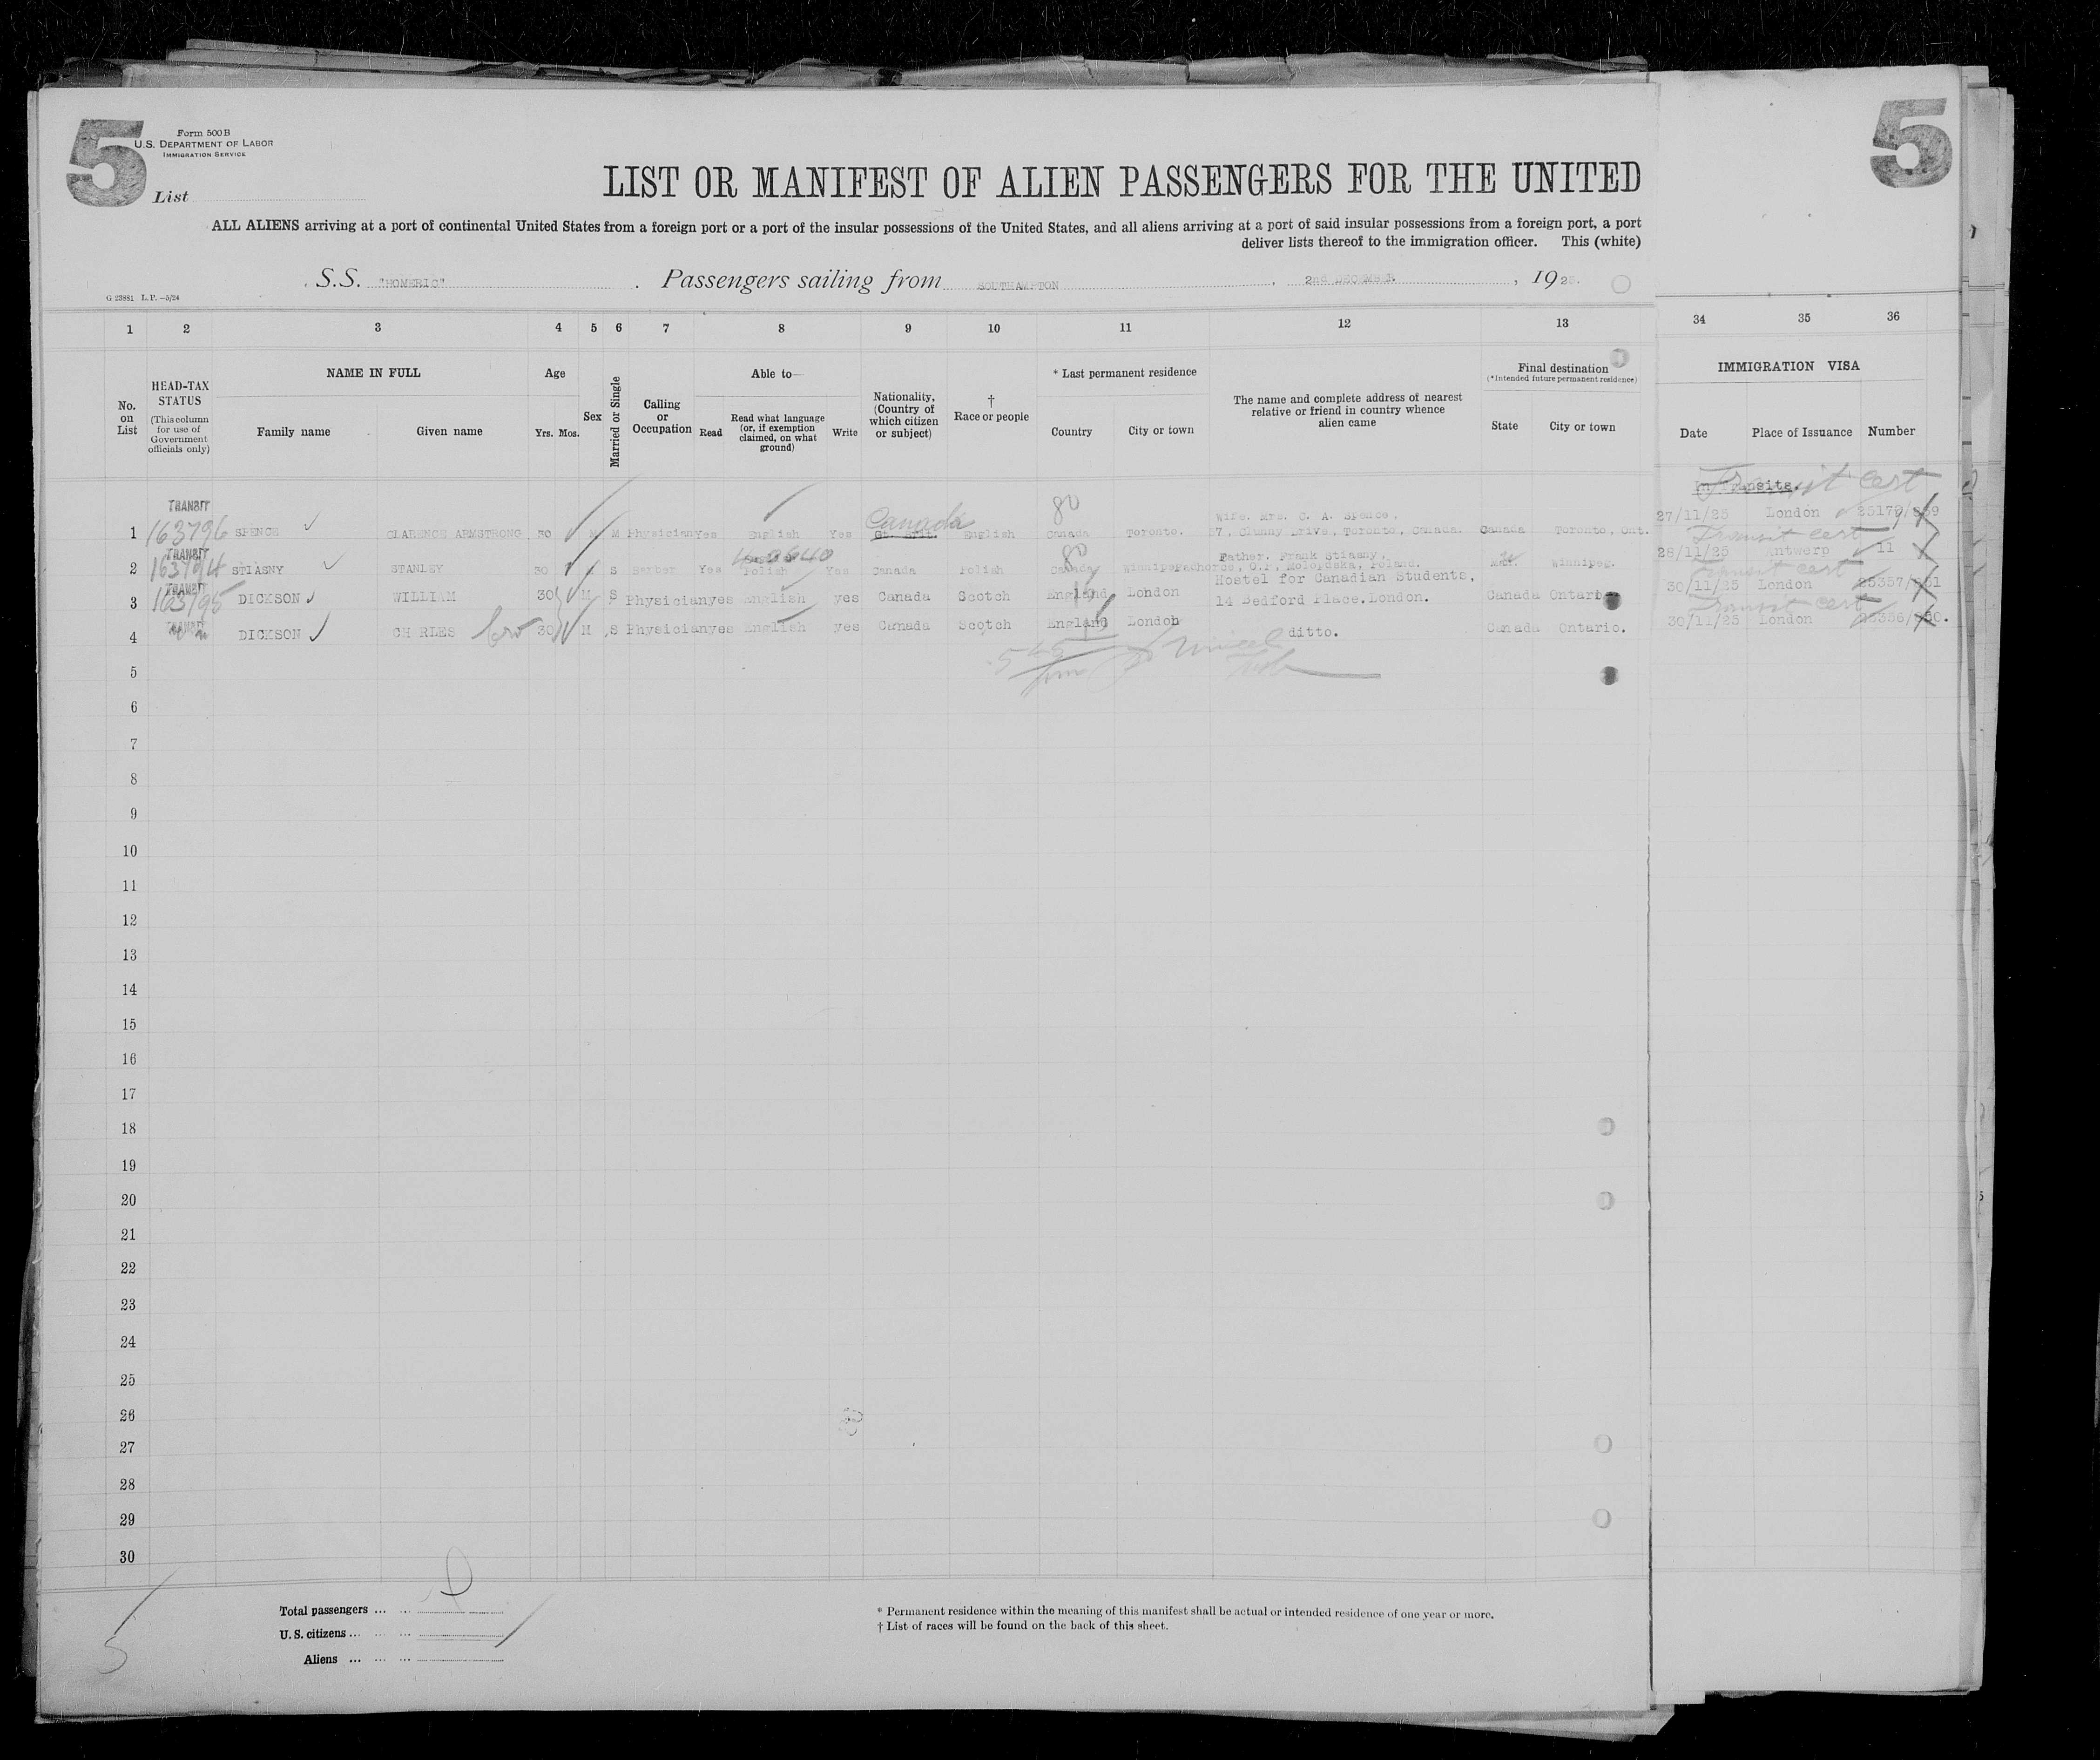 5
Form 500B
U.S. DEPARTMENT OF LABOR
IMMIGRATION SERVICE
List
5
LIST OR MANIFEST OF ALIEN PASSENGERS FOR THE UNITED
ALL ALIENS arriving at a port of continental United States from a foreign port or a port of the insular possessions of the United States, and all aliens arriving at a port of said insular possessions from a foreign port, a port
deliver lists thereof to the immigration officer. This (white)
S.S. "HOMERIC" . Passengers sailing from SOUTHAMPTON , 2nd DECEMBER , 1925.
G 23881 L.P.—5/24
1 2 3 4 5 6 7 8 9 10 11 12 13 34 35 36
No. on List
HEAD-TAX STATUS (This column for use of Government officials only)
NAME IN FULL
Family name Given name
Age
Yrs. Mos.
Sex
Married or Single
Calling or Occupation
Able to—
Read Read what language (or, if exemption claimed, on what ground) Write
Nationality, (Country of which citizen or subject)
† Race or people
* Last permanent residence
Country City or town
The name and complete address of nearest relative or friend in country whence alien came
Final destination
(*Intended future permanent residence)
State City or town
IMMIGRATION VISA
Date Place of Issuance Number
In Transits. Transit cert
TRANSIT
Canada 80 Wife. Mrs. C. A. Spence,
1 163796 SPENCE CLARENCE ARMSTRONG 30 M M Physician Yes English Yes Gt. Brit. English Canada Toronto. 17, Clunny Drive, Toronto, Canada. Canada Toronto, Ont. 27/11/25 London
TRANSIT 80 Father. Frank Stiasny, Transit cert
2 STIASNY STANLEY 30 S Barber Yes Polish Yes Canada Polish Canada Winnipeg Poland. Winnipeg. 28/11/25 Antwerp 11
TRANSIT Hostel for Canadian Students, Transit cert
3 163795 DICKSON WILLIAM 30 M S Physician yes English yes Canada Scotch England London 14 Bedford Place. London. Canada Ontario 30/11/25 London
TRANSIT Transit cert
4 DICKSON CHARLES bro 30 M S Physician yes English yes Canada Scotch England London ditto. Canada Ontario. 30/11/25 London
5
6
7
8
9
10
11
12
13
14
15
16
17
18
19
20
21
22
23
24
25
26
27
28
29
30
Total passengers ... ...
U.S. citizens ... ... ...
Aliens ... ... ...
* Permanent residence within the meaning of this manifest shall be actual or intended residence of one year or more.
† List of races will be found on the back of this sheet.
5